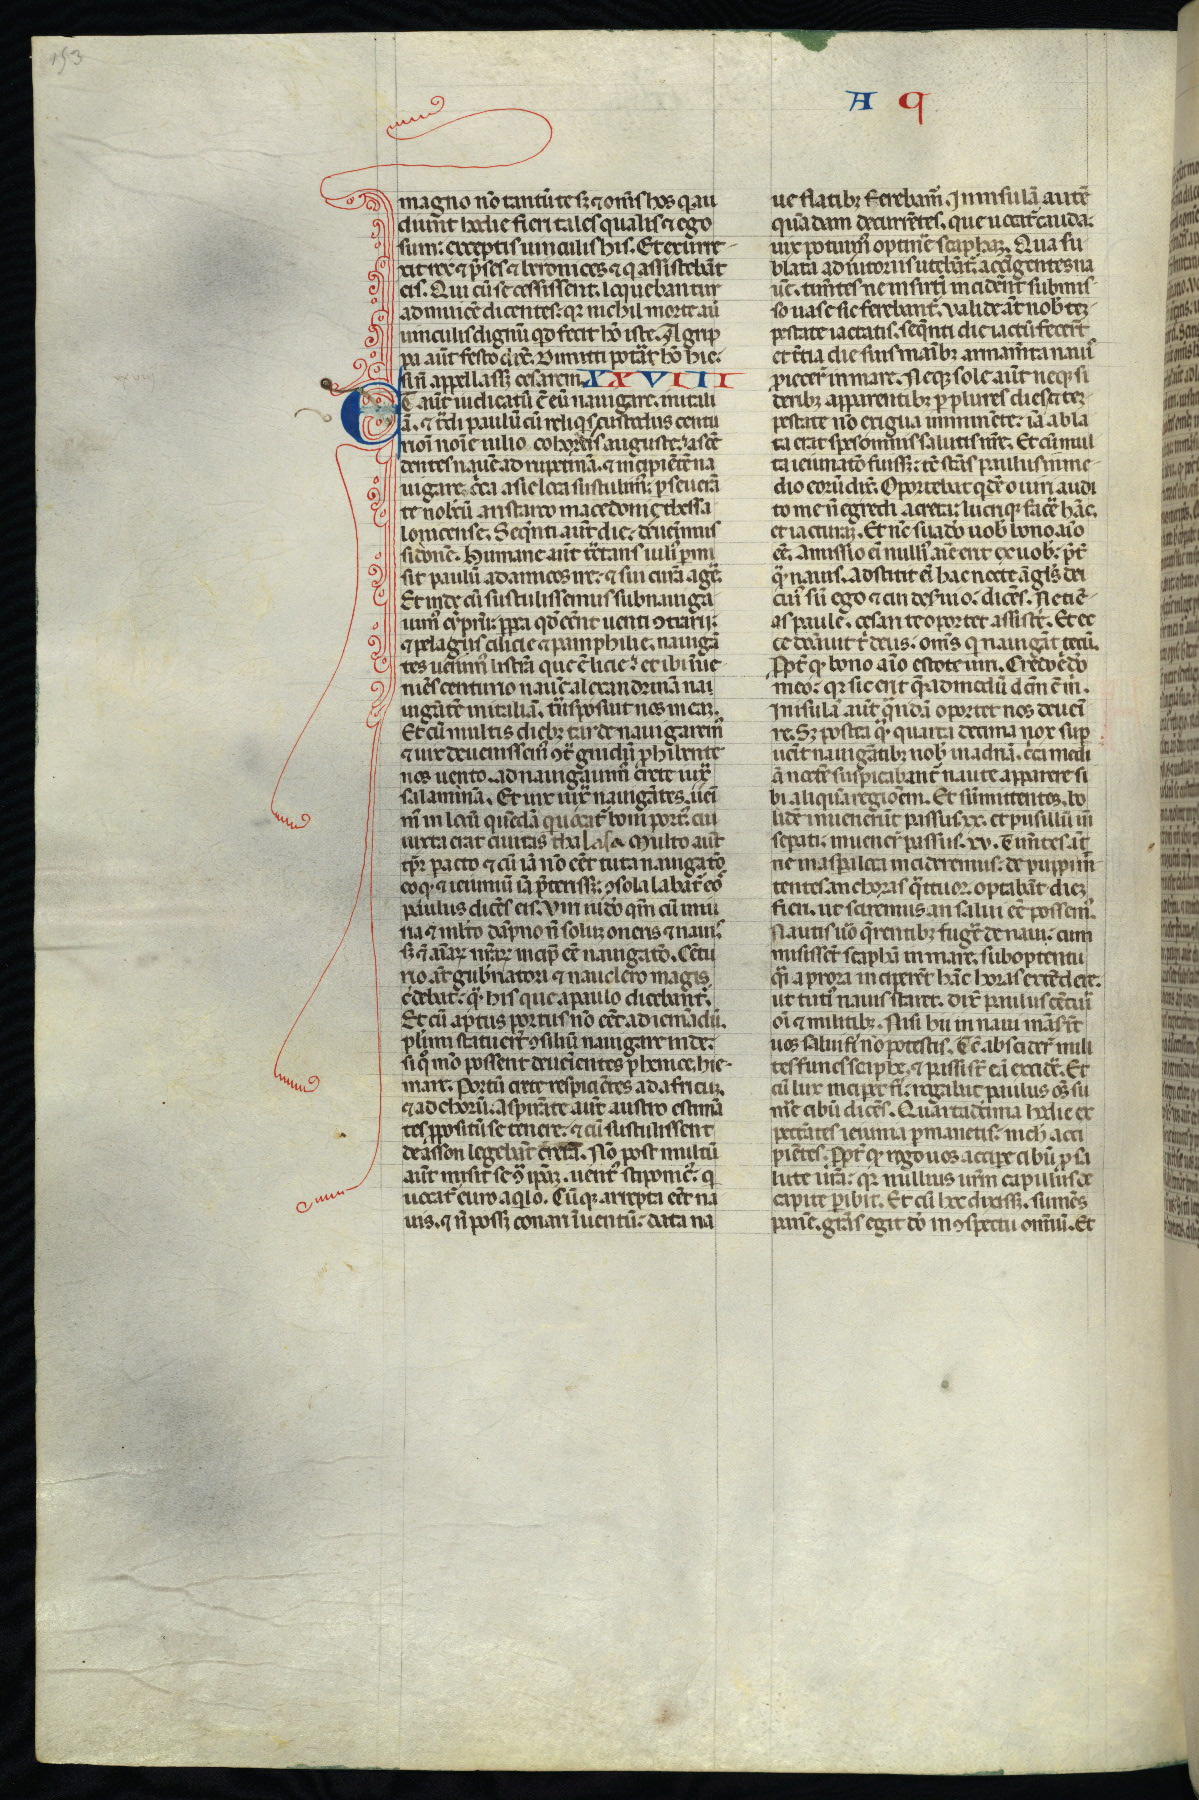 153
A q
magno nō tantū te sꝫ ⁊ om̄s hos q̇ au
diunt hodie fieri tales qualis ⁊ ego
sum: exceptis uinculis his. Et exurre-
xit rex ⁊ p̄ses ⁊ beronices ⁊ q̇ assistebāt
eis. Qui cū secessissent. loquebantur
ad inuicē dicentes: qꝛ nichil morte aū
uinculis dignū qd fecit hō iste. Agrip
pa aūt festo dix̄. Dimitti potat̄ hō hic.
si n̄ appellassꝫ cesarem. XXVIII
Et aūt iudicatū ē eū nauigare in itali
ā. ⁊ t̄di paulū cū reliqs custodiis centu
rioī noīe iulio cohortis auguste: ascē
dentes nauē adrumetinā. ⁊ incipiētē na
uigare c̄ca asie loca sustulim̄: p̱seuerā
te nob̄cū aristarco macedoniꝭ thessa
lonicense. Seq̄nti aūt die: deueīmus
sidonē. Humane aūt t̄ctans iuli⁹ p̱mi
sit paulū ad amicos ire: ⁊ sui curā agē.
Et inde cū sustulissemus subnauiga
uim⁹ cyp̄m: ꝓpt̄ea qd eēnt uenti ꝯtrarii:
⁊ pelagus cilicie ⁊ pamphilie. nauigā
tes uenim⁹ listrā que ē licie: et ibi īue
niēs centurio nauē alexandrinā nai
uigātē in italiā. tr̄nsposuit nos in eaꝫ.
Et cū multis diebꝫ tarde nauigarem⁹
⁊ uix deuenissem⁹ ꝯt̄ gnidū p̱hibente
nos uento. adnauigauim⁹ crete iux̄
salaminā. Et uix iux̄ nauigātes. uen
im⁹ in locū quēdā qui uocat̄ boni port⁹. cui
iuxta erat ciuitas thalasa. Multo aūt
tp̄r p̱acto ⁊ cū iā nō eēt tuta nauigatō
eo qꝫ ⁊ ieiuniū iā p̄terissꝫ: ꝯsolabat̄ eos
paulus dicēs eis. Viri uideo qm̄ cū iniu
ria ⁊ m̄lto dāpno n̄ soluꝫ oneris ⁊ nauis
sꝫ ⁊ aīarꝝ n̄rarꝝ incip̄ eē nauigatō. Cētu
rio aūt gub̄natori ⁊ nauclero magis
c̄debat: q̄ his que a paulo dicebant̄.
Et cū aptus portus nō eēt ad iemādū.
plimi statuer̄t ꝯsiliū nauigare inde:
si q̊ mō possent deueīentes phenice. hie-
mare. Portū crete respiciētes ad africū.
⁊ ad chorū. Aspirāte aūt austro estima
tes ꝓpositū se tenere: ⁊ cū sustulissent
de asson legebāt cretā. Nō post multū
aūt misit se ꝯ̄ ipaꝫ. uent⁹ tiphonic⁹: q̇
uocat̄ euro aqilo. Cūqꝫ arrepta eēt na
uis. ⁊ n̄ possꝫ conari ī uentū: data na
ue flatibꝫ ferebam̄. In insulā autē
quādam decurrētes. que uocat̄ cauda:
uix potuim⁹ optinē scaphaꝫ. Qua su
blata adiutoriis utebāt̄. accīgentes na
uē. timētes ne in sirtī incidērt submis-
so uase sic ferebant̄. Valide aūt nob̄ teꝫ-
pestate iactatis. seq̄nti die iactū fecert̄
et t̄tia die suis manibꝫ armam̄ta nauis
ꝓiecer̄ in mare. Neqꝫ sole aūt neqꝫ si
deribꝫ apparentibꝫ p̱ plures dies ⁊ teꝫ-
pestate nō exigua imminēte: iā abla
ta erat spes omnis salutis nr̄e. Et cū mul
ta ieiunatō fuissꝫ: tc̄ stās paulus in me-
dio eorū dix̄. Oportebat qdē o uiri audi
to me n̄ egredi a creta: lucriqꝫ facē hāc.
et iacturaꝫ. Et nūc suadeo uob̄ bono aīo
eē. Amissio eī nulli⁹ aīe erit ex uob̄: pt̄
q̄ nauis. Adstitit eī hac nocte āgls dei
cui⁹ sū ego ⁊ cui deseruio. dicēs. Ne tiē-
as paule. cesari te oportet assistē. Et ec
ce donauit t̄ deus. om̄s q̇ nauigāt tecū.
Ppt̄ qꝫ bono aīo estote uiri. Credo ē do
meo: qꝛ sic erit q̄admodū dcm̄ ē m̄.
In isulā aūt quādā oportet nos deueī
re. Sꝫ postea q̄ quarta decima nox sup
uenit nauigātibꝫ nob̄ in adria. c̄ca medi
ā noctē suspicabant̄ naute apparere si
bi aliquā regioem. Et summittentes. bo
lidē inuenerūt passus. xx. et pusillū in
sepati: inuener̄t passus. xv. Timētes aūt
ne in aspa loca incideremus: de puppi m̄
tentes anchoras q̄ttuor. optabāt dieꝫ
fieri. ut sciremus an salui eē possem⁹.
Nautis ū̊ q̄rentibꝫ fugē de naui: cum
misissēt scaphā in mare. sub optentu
q̄i a prora inciperēt hāc horas extēdere.
ut tuti⁹ nauis staret. dix̄ paulus cētuī
oī ⁊ militibꝫ. Nisi hii in naui māserīt
uos salui fi. nō potestis. Tc̄ absciderūt mili
tes funes scaphe. ⁊ passi sūt eā excidē. Et
cū lux incipet fi. rogabat paulus oēs su
m̄e cibū dicēs. Quartadecima hodie ex
pectātes ieiunia p̱manetis: nich̄ acci
pientes. Ppt̄ qꝫ rogo uos accipe cibū p̱ sa
lute ur̄a: qꝛ nullius urm̄ capillus de
capite p̱ibit. Et cū hec dixissꝫ. sumēs
panē. grās egit do in ꝯspectu omniū. Et